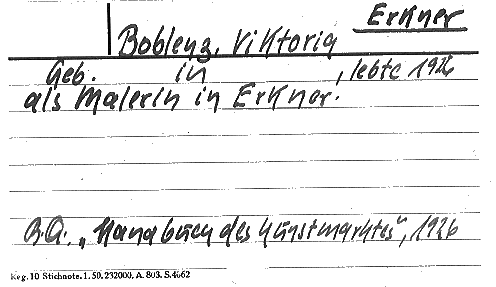 Erkner
Boblenz, Viktoria
Geb. in , lebte 1926
als Malerin in Erkner.
B.A. „Handbuch des Kunstmarktes", 1926
Reg. 10 Stichnote. 1. 50. 232000, A. 803. S. 4662